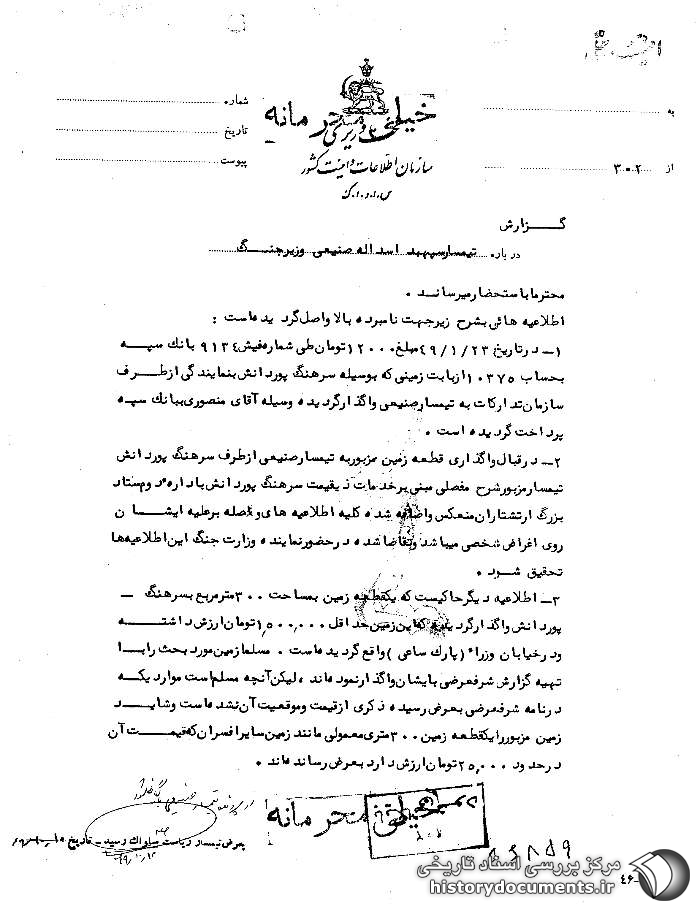 به
شماره
خیلی محرمانه
تاریخ
سازمان اطلاعات و امنیت کشور
پیوست
از ۳۰۲
س.ا.و.ا.ک
گزارش
درباره تیمسار سپهبد اسداله صنیعی وزیر جنگ
محترما باستحضار میرساند .
اطلاعیه هائی بشرح زیر جهت نامبرده بالا واصل گردیده است :
۱ـ در تاریخ ۴۹/۱/۲۳ مبلغ ۱۲۰۰۰ تومان طی شماره فیش ۹۱۳۴ بانك سپه
بحساب ۱۰۳۷۵ از بابت زمینی که بوسیله سرهنگ پوردانش بنمایندگی از طرف
سازمان تدارکات به تیمسار صنیعی واگذار گردیده وسیله آقای منصوری ببانك سپه
پرداخت گردیده است .
۲ـ در قبال واگذاری قطعه زمین مزبور به تیمسار صنیعی از طرف سرهنگ پوردانش
تیمسار مزبور شرح مفصلی مبنی بر خدمات ذیقیمت سرهنگ پوردانش باداره دوم ستاد
بزرگ ارتشتاران منعکس و اضافه شده کلیه اطلاعیه های واصله بر علیه ایشان
روی اغراض شخصی میباشد و تقاضا شده در حضور نماینده وزارت جنگ این اطلاعیه ها
تحقیق شود .
۳ـ اطلاعیه دیگر حاکیست که یکقطعه زمین بمساحت ۳۰۰ متر مربع بسرهنگ ـ
پوردانش واگذار گردیده که این زمین حداقل ۱,۵۰۰,۰۰۰ تومان ارزش داشته
و در خیابان وزراء (پارك ساعی) واقع گردیده است . مسلما زمین مورد بحث را با
تهیه گزارش شرفعرضی بایشان واگذار نموده اند ، لیکن آنچه مسلم است مواردیکه
در نامه شرفعرضی بعرض رسیده ذکری از قیمت و موقعیت آن نشده است و شاید
زمین مزبور را یکقطعه زمین ۳۰۰ متری معمولی مانند زمین سایر افسران که قیمت آن
در حدود ۲۵,۰۰۰ تومان ارزش دارد بعرض رسانده اند .
خیلی محرمانه
بعرض تیمسار ریاست ساواك رسید ـ تاریخ
مرکز بررسی اسناد تاریخی
historydocuments.ir
۴۶